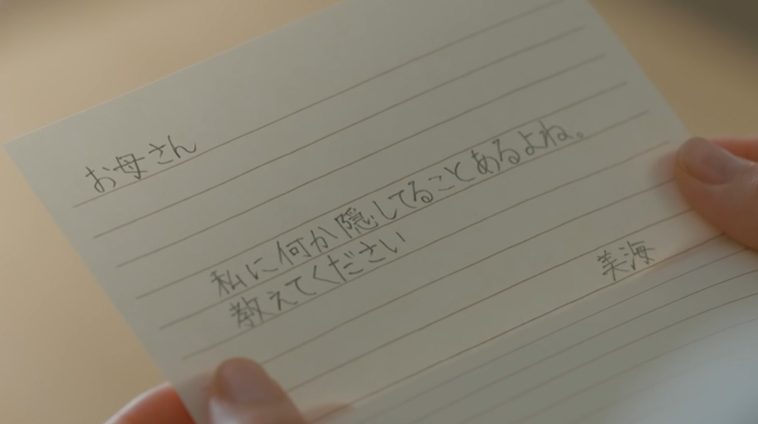 お母さん
私に何か隠してることあるよね。
教えてください
美海